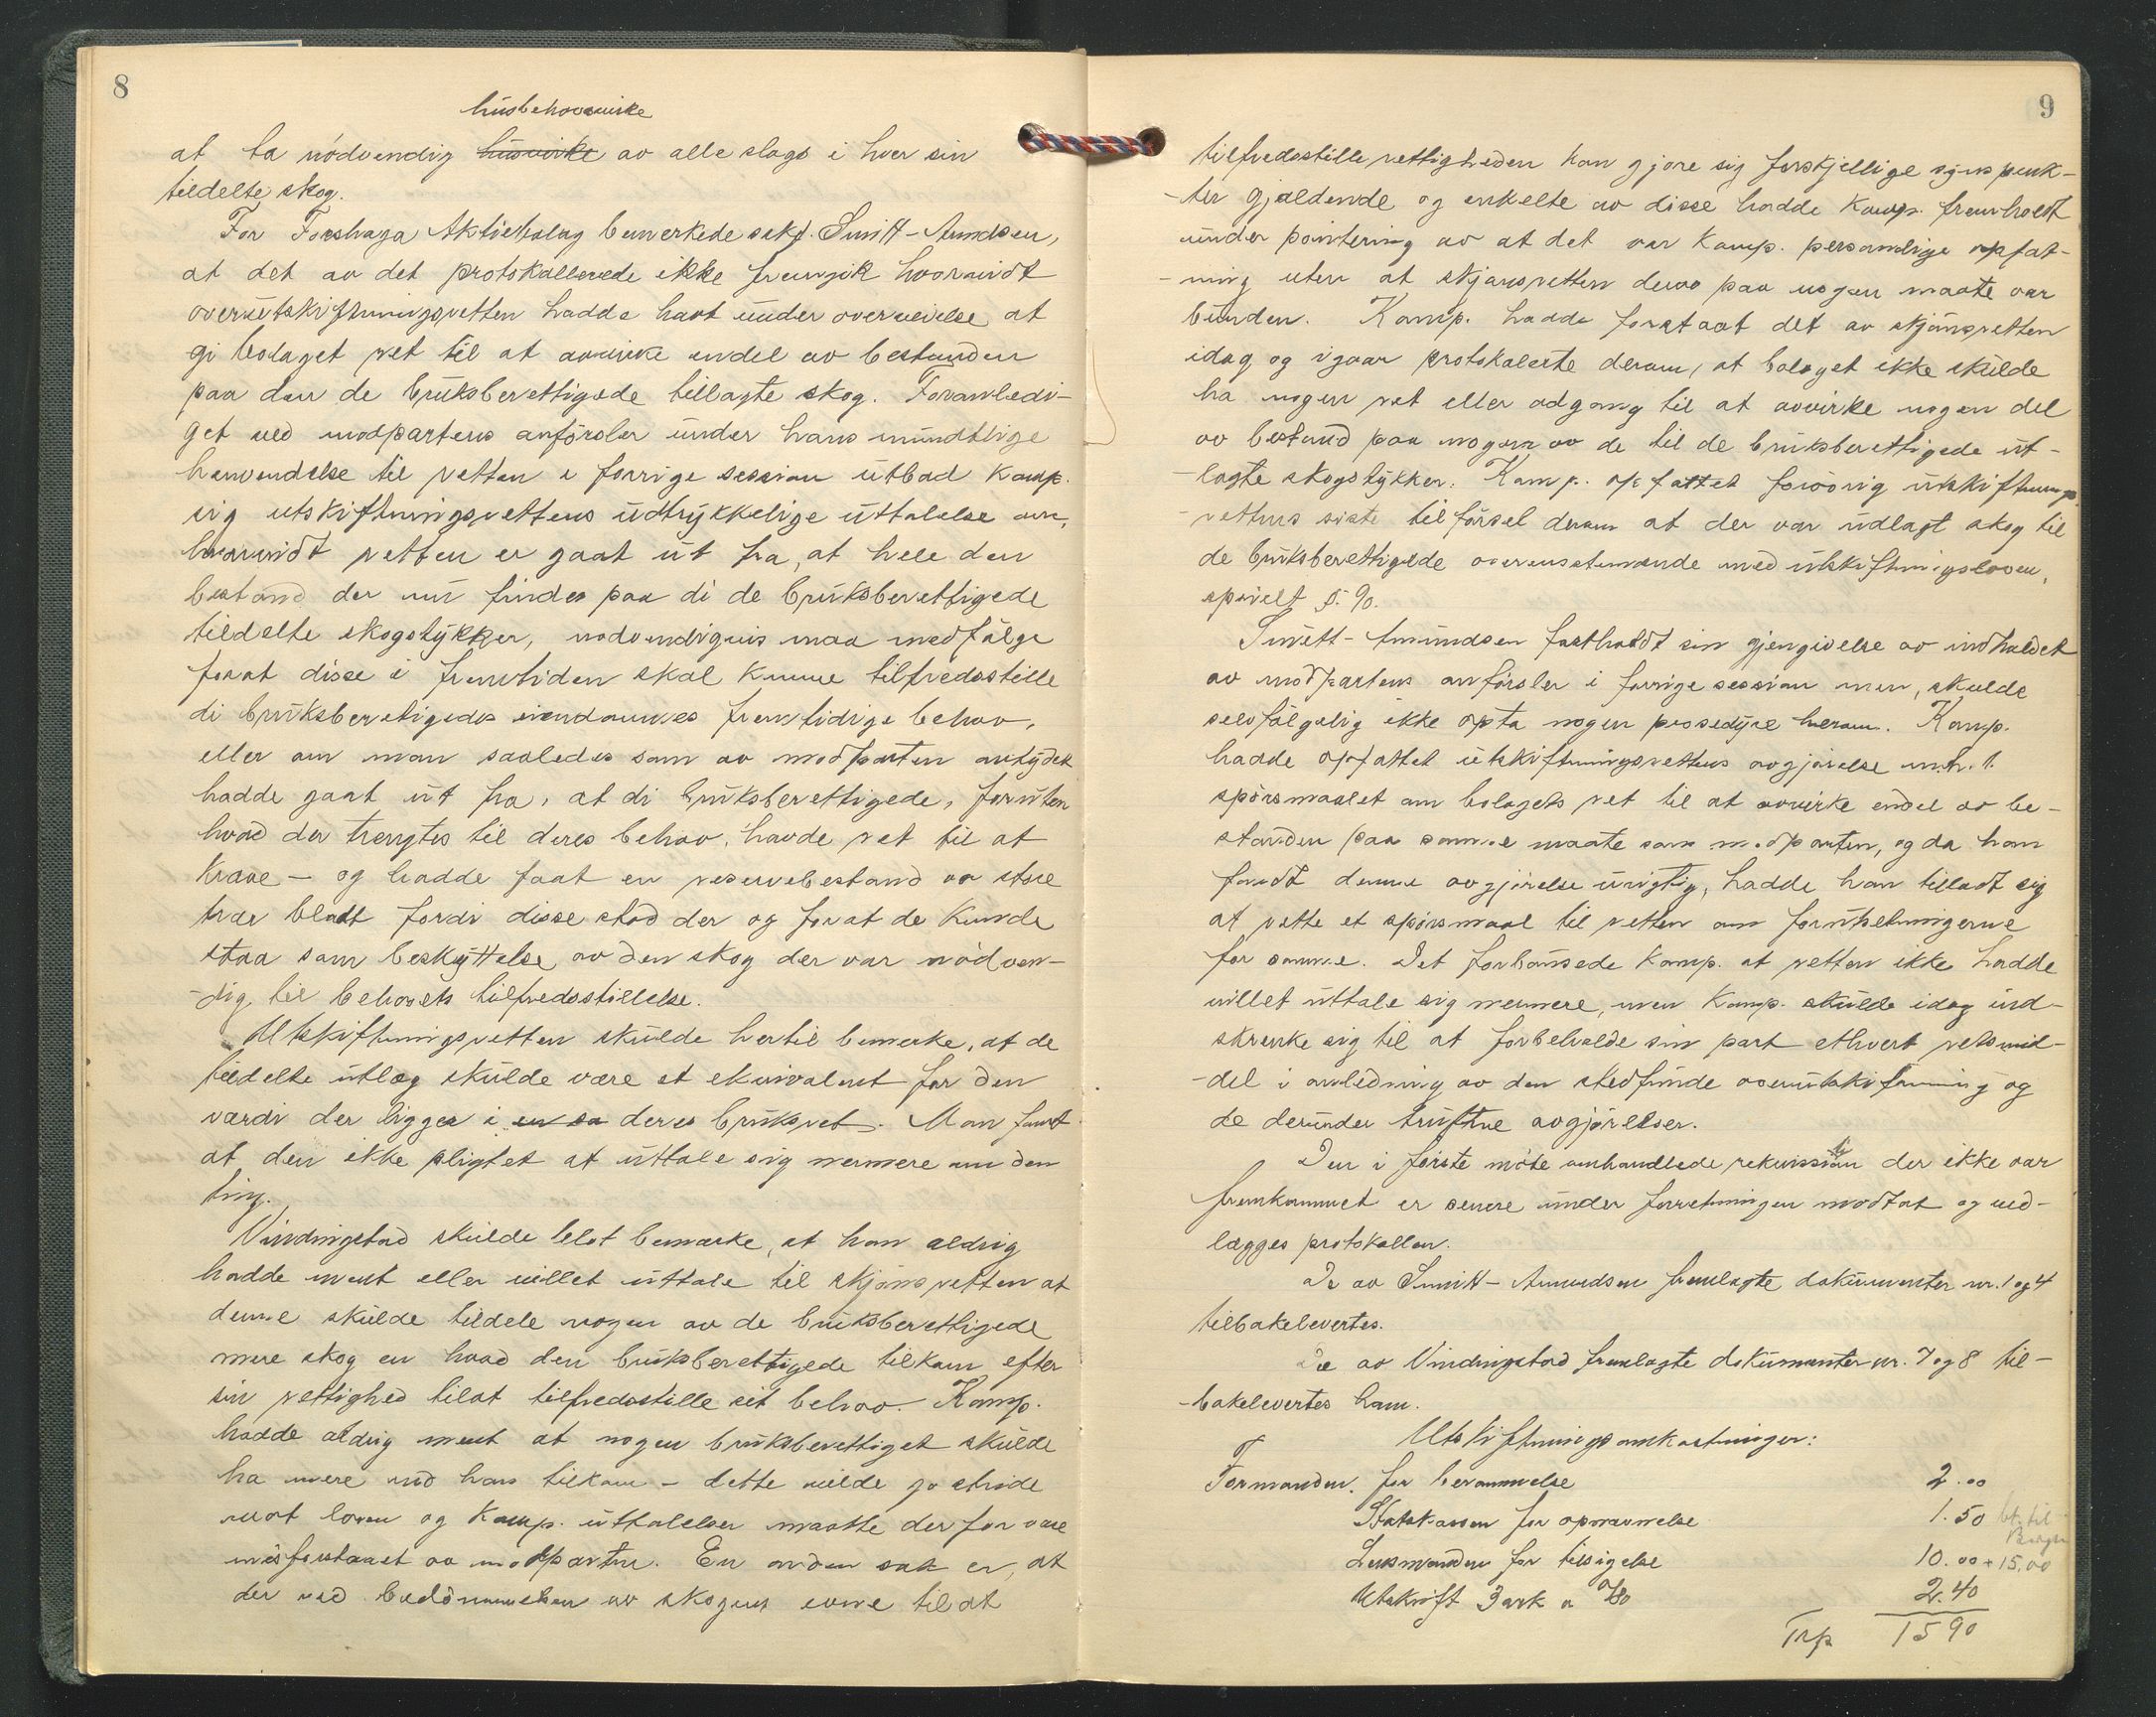 8
husbehovsvirke
at ta nödvendig husvirke av alle slags i hver sin
tildelte skog.
For Forshaga Aktiebolag bemerkede sakf. Smitt-Amundsen,
at det av det protokollerede ikke fremgik hvorvidt
overutskiftningsretten hadde havt under overveielse at
gi bolaget ret til at avvirke endel av bestanden
paa den de bruksberettigede tillagte skog. Foranledi-
get ved modpartens anförsler under hans mundtlige
henvendelse til retten i forrige session utbad Komp.
sig utskiftningsrettens udtrykkelige uttalelse om,
hvorvidt retten er gaat ut fra, at hele den
bestand der nu findes paa di de bruksberettigede
tildelte skogstykker, nodvendigvis maa medfølge
forat disse i fremtiden skal kunne tilfredsstille
di bruksberetigedes eiendommes fremtidige behov,
eller om man saaledes som av modparten antydet
hadde gaat ut fra, at di bruksberettigede, foruten
hvad der trengtes til deres behov, havde ret til at
kræve - og hadde faat en reservebestand av store
trær blott fordi disse stod der og forat de kunde
staa som beskyttelse av den skog der var nödven-
-dig til behovets tilfredsstillelse.
Utskiftningsretten skulde hertil bemerke, at de
tildelte utlæg skulde være et ekvivalent for den
værdi der ligger i en sa deres bruksret. Man fandt
at den ikke pligtet at uttale sig nermere om den
ting.
Vindingstad skulde blot bemærke, at han aldrig
hadde ment eller villet uttale til skjönsretten at
denne skulde tildele nogen av de bruksberettigede
mere skog en hvad den bruksberettigede tilkom efter
sin rettighed tilat tilfredsstille sit behov. Komp.
hadde aldrig ment at nogen bruksberettiget skulde
ha mere end ham tilkom - dette vilde jo stride
mot loven og Komp. uttalelser maatte derfor være
misforstaaet av modparten. En anden sak er, at
der ved bedömmelsen av skogens evne til at
9
tilfredsstille rettigheden kan gjøre sig forskjellige synspunk-
-ter gjældende og enkelte av disse hadde Komp. fremholdt
under pointering av at det var Komp. personlige opfat-
-ning uten at skjønsretten derav paa nogen maate var
bunden. Komp. hadde forstaat det av skjönsretten
idag og igaar protokolerte derom, at bolaget ikke skulde
ha nogen ret eller adgang til at avvirke nogen del
av bestand paa nogen av de til de bruksberettigede ut-
-lagte skogstykker. Komp. opfattet forövrig utskiftnings-
-rettens siste tilförsel derom at der var udlagt skog til
de bruksberettigede overensstemmende med utskiftningsloven,
specielt §. 90.
Smitt-Amundsen fastholdt sin gjengivelse av indholdet
av modpartens anförsler i forrige session men, skulde
selvfölgelig ikke opta nogen prosedyre herom. Komp.
hadde opfattet utskiftningsrettens avgjörelse m.h.t.
spörsmaalet om bolagets ret til at avvirke endel av be-
standen paa samme maate som modparten, og da han
fandt denne avgjörelse urigtig, hadde han tilladt sig
at rette et spörsmaal til retten om forutsetningerne
for samme. Det forbausede Komp. at retten ikke hadde
villet uttale sig nermere, men Komp. skulde idag ind-
skrenke sig til at forbeholde sin part ethvert retsmid-
-del i anledning av den stedfunde overutskiftning og
de derunder trufne avgjörelser.
Den i förste möte omhandlede rekvisition der ikke var
fremkommet er senere under forretningen modtat og ved-
lægges protokollen.
De av Smitt-Amundsen fremlagte dokumenter nr. 1 og 4
tilbakelevertes.
De av Vindingstad fremlagte dokumenter nr. 7 og 8 til-
-bakelevertes ham.
Utskiftningsomkostninger:
Formanden. for berammelse 2.00
Statskassen for opnævnelse 1.50 bt. til
Lensmanden for tilsigelse 10.00 + 15,00
Utskrift 3 ark a 0/80 2.40
Trp 15 90